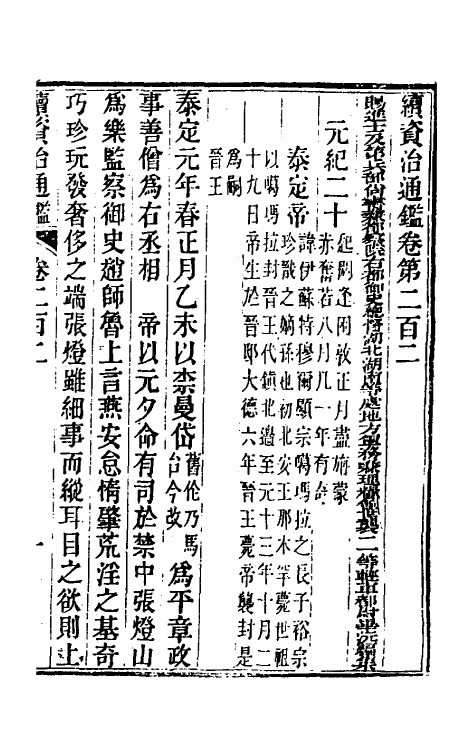 續資治通鑑卷第二百二
賜進士及第兵部尚書兼都察院右都御史總督湖北湖南等處地方軍務兼理糧餉世襲二等輕車都尉畢沅編集
元紀二十 起閼逢困敦正月盡旃蒙
赤奮若八月凡一年有奇
泰定帝 諱伊蘇特穆爾顯宗噶瑪拉之長子裕宗
珍戩之嫡孫也初北安王那木罕薨世祖
以噶瑪拉封晉王代鎮北邊至元十三年十月二
十九日帝生於晉邸大德六年晉王薨帝襲封是
為嗣
晉王
泰定元年春正月乙未以柰曼岱 舊倫乃馬
台今改 為平章政
事善僧為右丞相 帝以元夕命有司於禁中張燈山
為樂監察御史趙師魯上言燕安怠惰肇荒淫之基奇
巧珍玩發奢侈之端張燈雖細事而縱耳目之欲則上
續資治通鑑 卷二百二 一